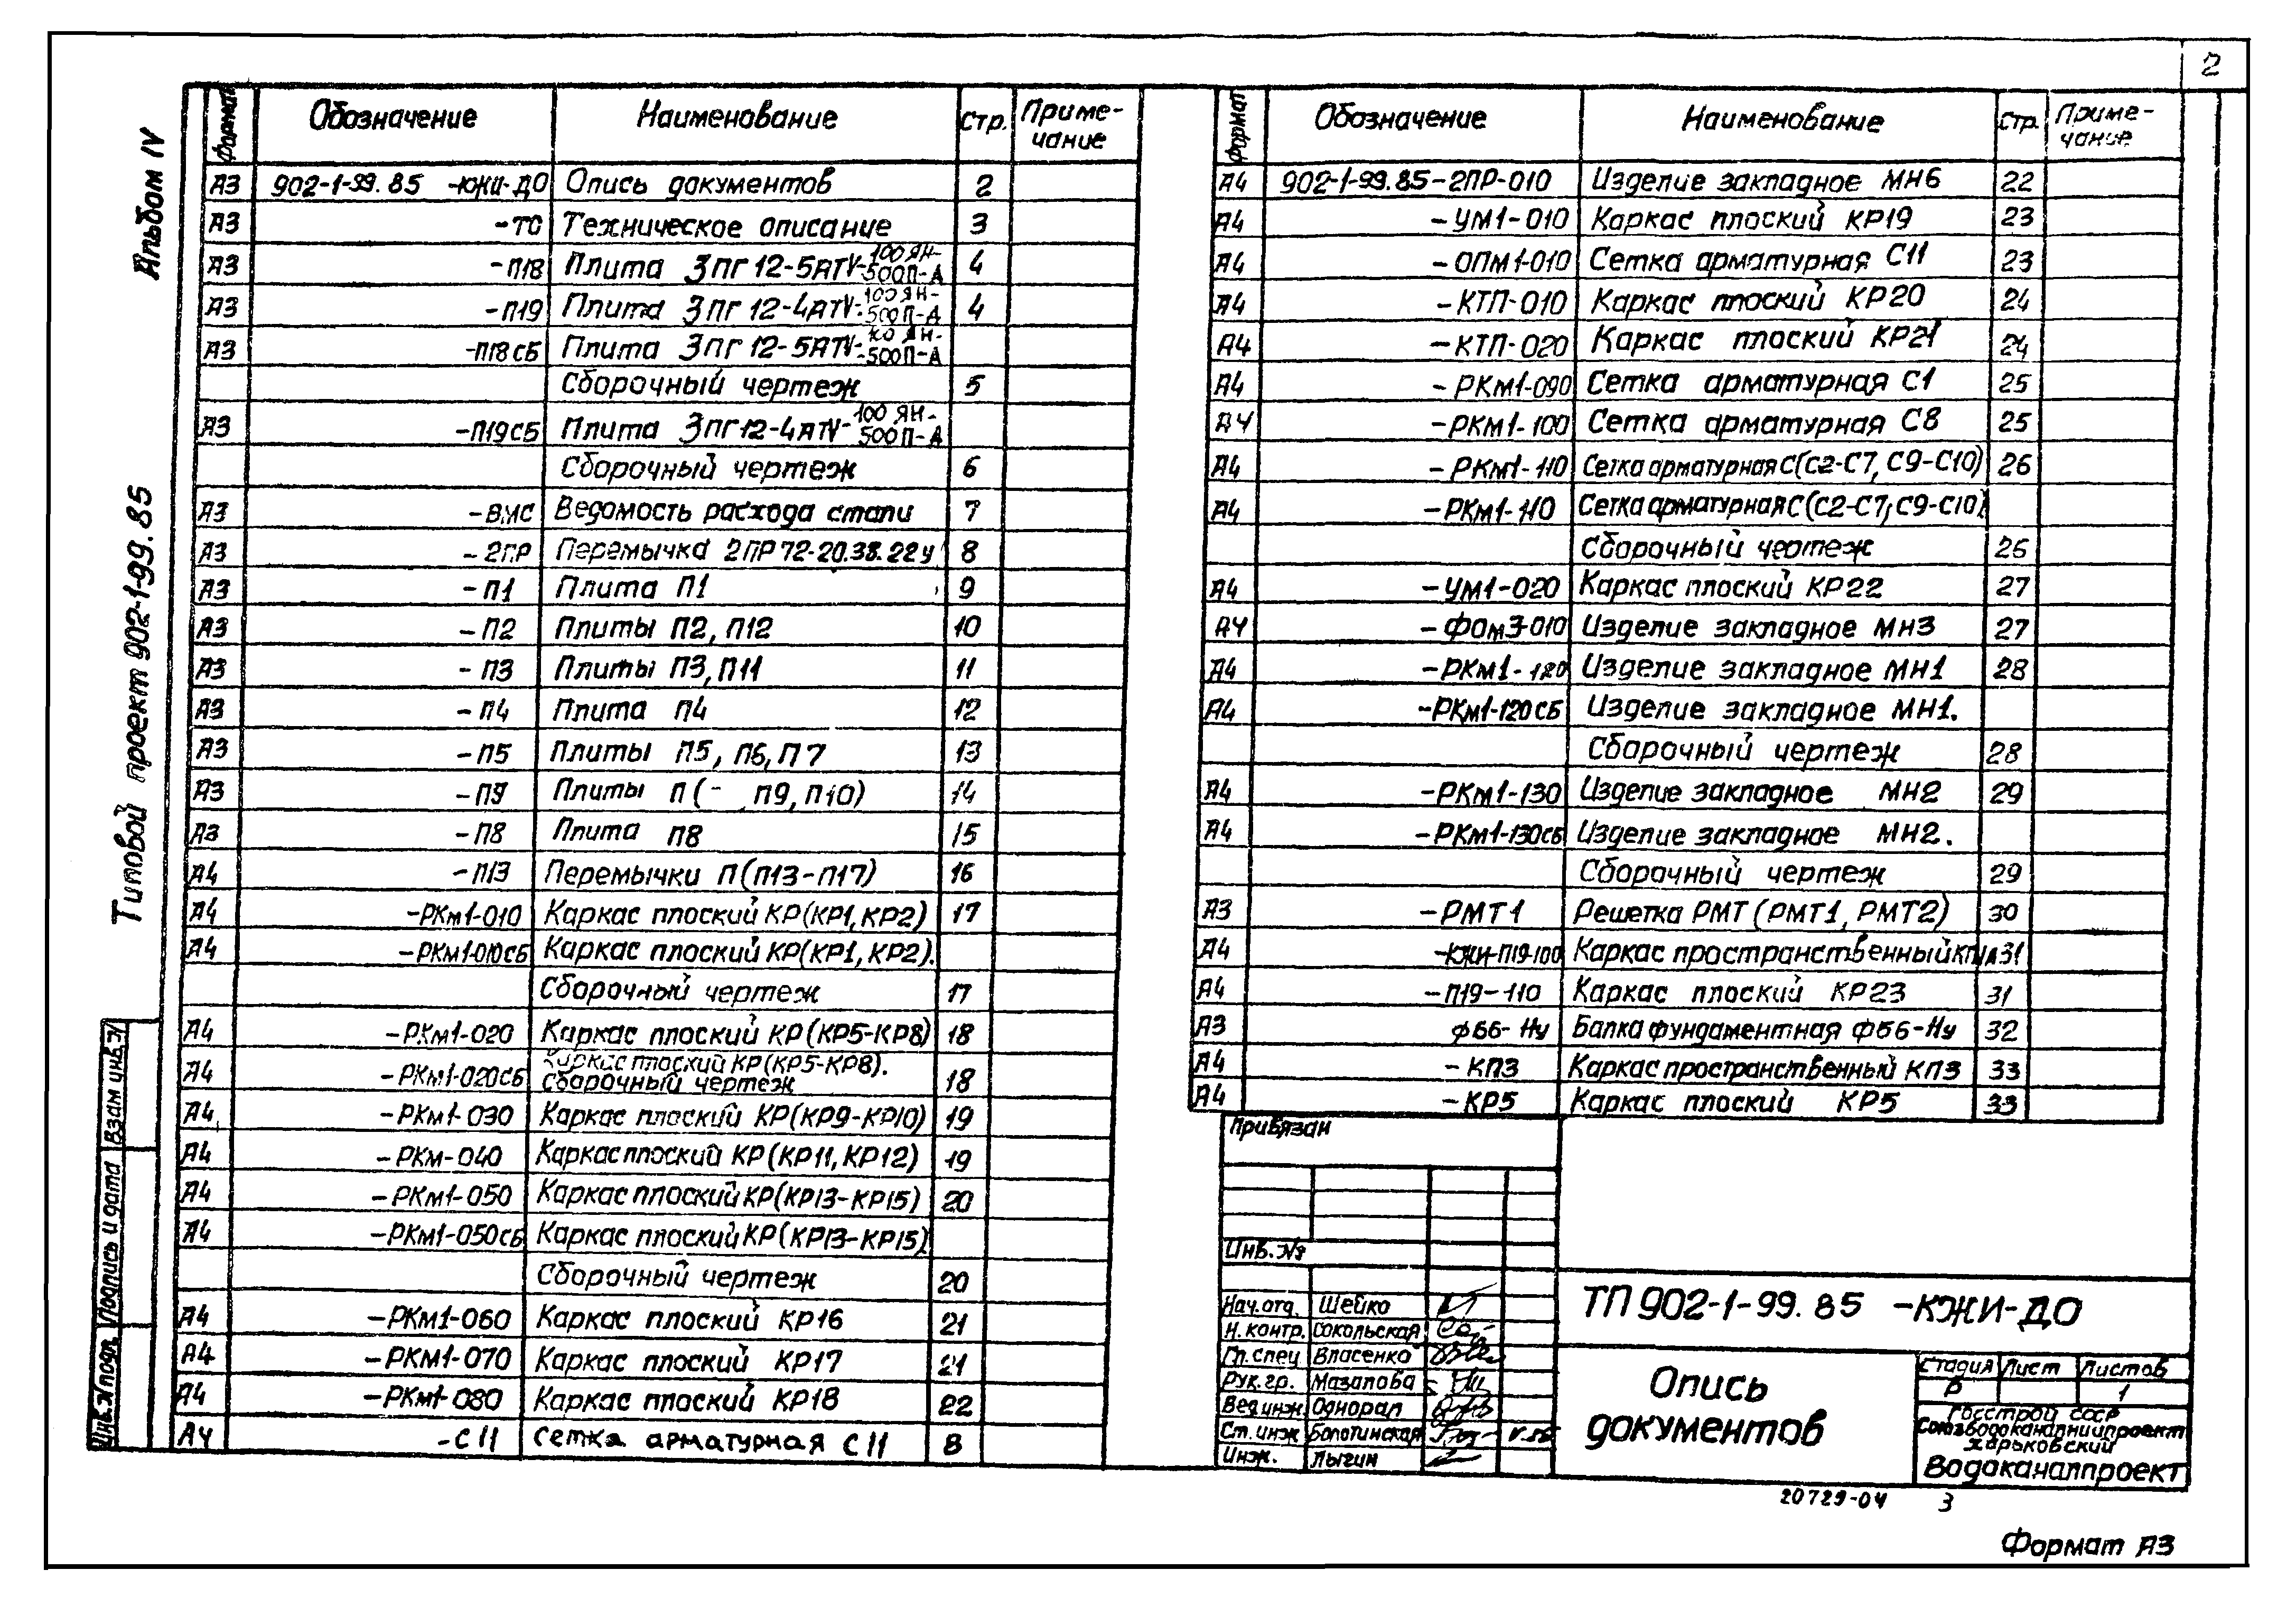 2
Альбом IV
Типовой проект 902-1-99.85
Взам инв.№
Подпись и дата
Инв.№подл.
Формат Обозначение Наименование Стр. Приме-
чание
А3 902-1-99.85 -КЖИ-ДО Опись документов 2
А3 -ТО Техническое описание 3
А3 -П18 Плита 3ПГ12-5АТV-100ЯН-500П-А 4
А3 -П19 Плита 3ПГ12-4АТV-100ЯН-500П-А 4
А3 -П18СБ Плита 3ПГ12-5АТV-100ЯН-500П-А
Сборочный чертеж 5
А3 -П19СБ Плита 3ПГ12-4АТV-100ЯН-500П-А
Сборочный чертеж 6
А3 -ВМС Ведомость расхода стали 7
А3 -2ПР Перемычка 2ПР72-20.38.22у 8
А3 -П1 Плита П1 9
А3 -П2 Плиты П2, П12 10
А3 -П3 Плиты П3, П11 11
А3 -П4 Плита П4 12
А3 -П5 Плиты П5, П6, П7 13
А3 -П9 Плиты П(- ,П9, П10) 14
А3 -П8 Плита П8 15
А4 -П13 Перемычки П(П13-П17) 16
А4 -РКм1-010 Каркас плоский КР(КР1,КР2) 17
А4 -РКм1-010СБ Каркас плоский КР(КР1,КР2).
Сборочный чертеж 17
А4 -РКм1-020 Каркас плоский КР(КР5-КР8) 18
А4 -РКм1-020СБ Каркас плоский КР(КР5-КР8).
Сборочный чертеж 18
А4 -РКм1-030 Каркас плоский КР(КР9-КР10) 19
А4 -РКм-040 Каркас плоский КР(КР11,КР12) 19
А4 -РКм1-050 Каркас плоский КР(КР13-КР15) 20
А4 -РКм1-050СБ Каркас плоский КР(КР13-КР15)
Сборочный чертеж 20
А4 -РКм1-060 Каркас плоский КР16 21
А4 -РКМ1-070 Каркас плоский КР17 21
А4 -РКм1-080 Каркас плоский КР18 22
А4 -С11 Сетка арматурная С11 8
Формат Обозначение Наименование Стр. Приме-
чание
А4 902-1-99.85-2ПР-010 Изделие закладное МН6 22
А4 -УМ1-010 Каркас плоский КР19 23
А4 -ОПМ1-010 Сетка арматурная С11 23
А4 -КТП-010 Каркас плоский КР20 24
А4 -КТП-020 Каркас плоский КР21 24
А4 -РКм1-090 Сетка арматурная С1 25
А4 -РКМ1-100 Сетка арматурная С8 25
А4 -РКм1-110 Сетка арматурная С(С2-С7, С9-С10) 26
А4 -РКм1-110 Сетка арматурная С(С2-С7, С9-С10)
Сборочный чертеж 26
А4 -УМ1-020 Каркас плоский КР22 27
А4 -ФОм3-010 Изделие закладное МН3 27
А4 -РКм1-120 Изделие закладное МН1 28
А4 -РКм1-120СБ Изделие закладное МН1.
Сборочный чертеж 28
А4 -РКм1-130 Изделие закладное МН2 29
А4 -РКм1-130СБ Изделие закладное МН2.
Сборочный чертеж 29
А3 -РМТ1 Решетка РМТ(РМТ1, РМТ2) 30
А4 -КЖИ-П19-100 Каркас пространственный 31
А4 -П19-110 Каркас плоский КР23 31
А3 ФБ6-Ну Балка фундаментная ФБ6-Ну 32
А4 -КП3 Каркас пространственный КП3 33
А4 -КР5 Каркас плоский КР5 33
Привязан
Инв.№
Нач.отд. Шейко
Н.контр. Сокольская
Гл.спец Власенко
Рук.гр. Мазалова
Вед.инж. Однорал
Ст.инж Болотинская
Инж. Лыгин
ТП 902-1-99.85 -КЖИ-ДО
Опись
документов
Стадия Лист Листов
Р 1
Госстрой СССР
Союзводоканалниипроект
Харьковский
Водоканалпроект
20729-04 3
Формат А3